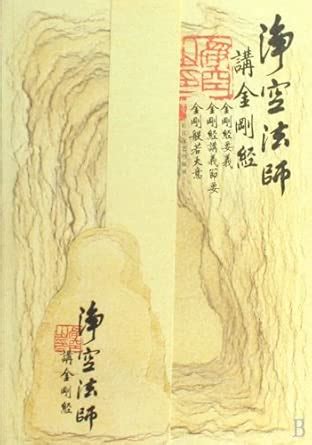 淨空法師
講金剛經
金剛經要義
金剛經講義節要
金剛般若大意
淨空法師
講金剛經
B